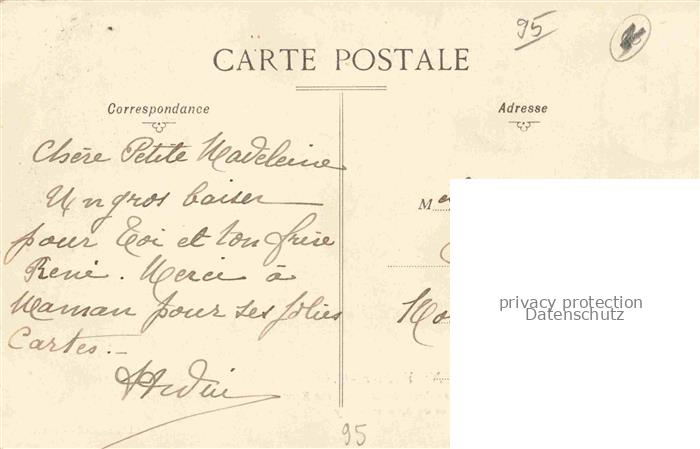 95
CARTE POSTALE
Correspondance
Adresse
Chère Petite Madeleine
Un gros baiser
pour Toi et ton frère
René. Merci à
Maman pour ses jolies
Cartes.-
M
privacy protection
Datenschutz
95